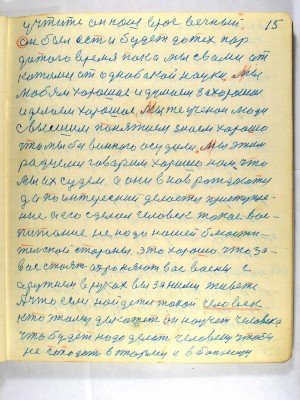 учтите он наш враг вечный. 15
он был ест и будет до тех пар
до того время пока мы с вами от
катими от однабакой науки. Мы
любим хорошое и думаем за хорошои
и делаем хорошое. Мы же ученои люди
с высшим понятием знаем хорошо
что мы бы виннаго осудили. Мы этим
радуем говарим хорошо нам что
мы их судем. а они в нов рождаюти
да по интересний делаети приступле-
ние а его сделал человек такое вос-
питание. не надо нашей блюсти-
тельскои стороны, это хорошо что за-
вас стоят охроняют вас ваены с
аружием в руках вы за ними живете
А что если найдется такой человек
кто этому докажет он научет человека
что будет надо делат человеку чтобы
не попадат в тюрму и в болницу